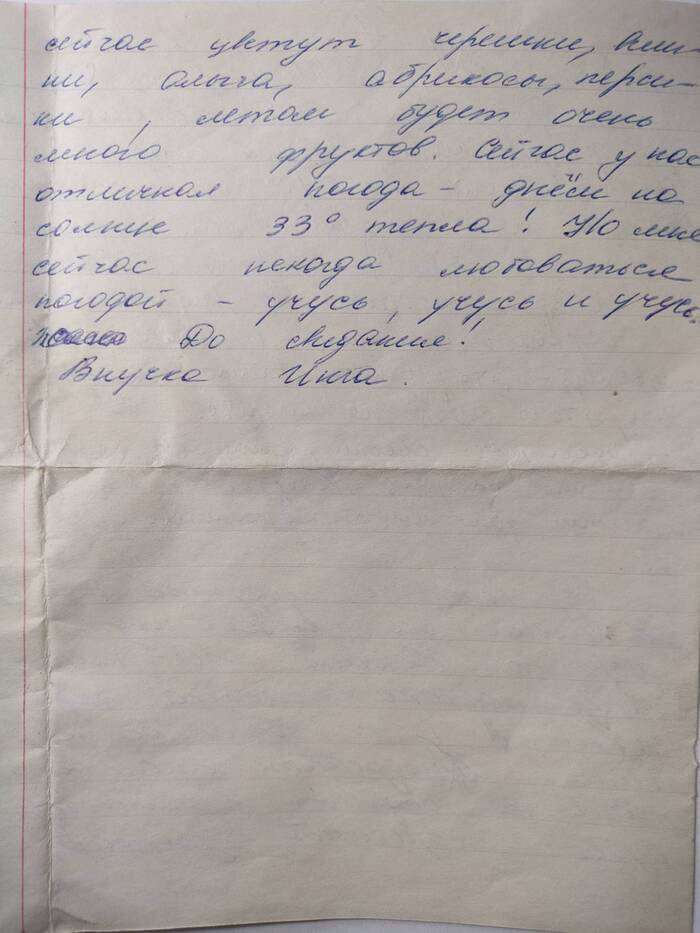 сейчас цветут черешни, виш-
ни, алыча, абрикосы, перси-
ки, летом будет очень
много фруктов. Сейчас у нас
отличная погода - днём на
солнце 33° тепла! Но мне
сейчас некогда любоваться
погодой - учусь, учусь и учусь.
До свидания!
Внучка Инга.